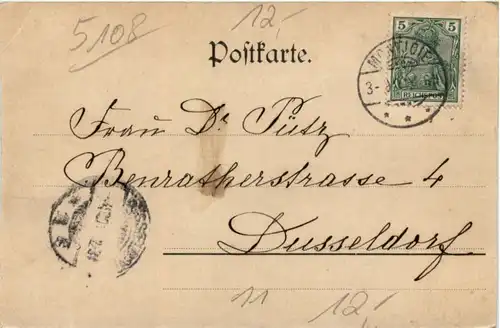 5108
12,-
Postkarte.
5 5
MONTJOIE
3-
Frau Dr Pütz
Benratherstrasse 4
Dusseldorf
11
12,-